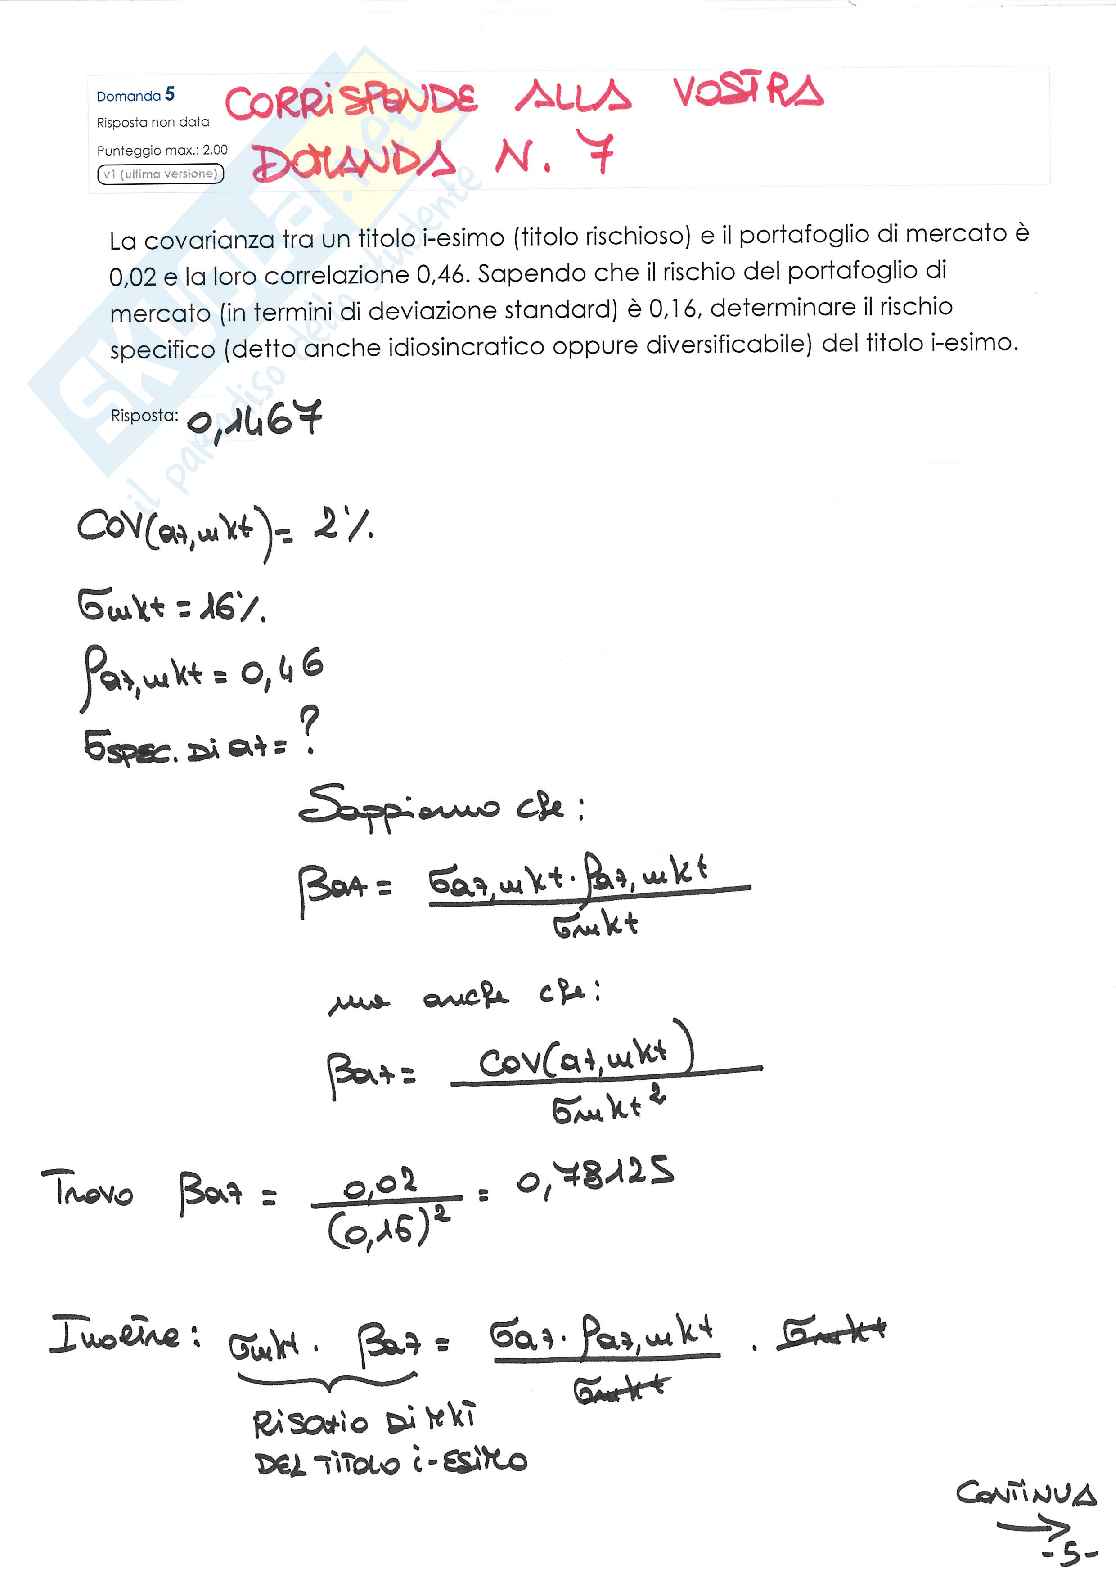 Domanda 5
Risposta non data
Punteggio max.: 2.00
v1 (ultima versione)
CORRISPONDE ALLA VOSTRA
DOMANDA N. 7
SKUOLA.net
il paradiso dello studente
La covarianza tra un titolo i-esimo (titolo rischioso) e il portafoglio di mercato è
0,02 e la loro correlazione 0,46. Sapendo che il rischio del portafoglio di
mercato (in termini di deviazione standard) è 0,16, determinare il rischio
specifico (detto anche idiosincratico oppure diversificabile) del titolo i-esimo.
Risposta: 0,1467
COV(a7,mkt) = 2%.
σmkt = 16%.
ρa7,mkt = 0,46
σSPEC. DI a7 = ?
Sappiamo che:
βa7 = σa7,mkt · ρa7,mkt
σmkt
ma anche che:
βa7 = COV(a7,mkt)
σmkt²
Trovo βa7 = 0,02 = 0,78125
(0,16)²
Inoltre: σmkt · βa7 = σa7 · ρa7,mkt · σmkt
σmkt
RISCHIO DI MKT
DEL TITOLO i-ESIMO
CONTINUA
→
-5-